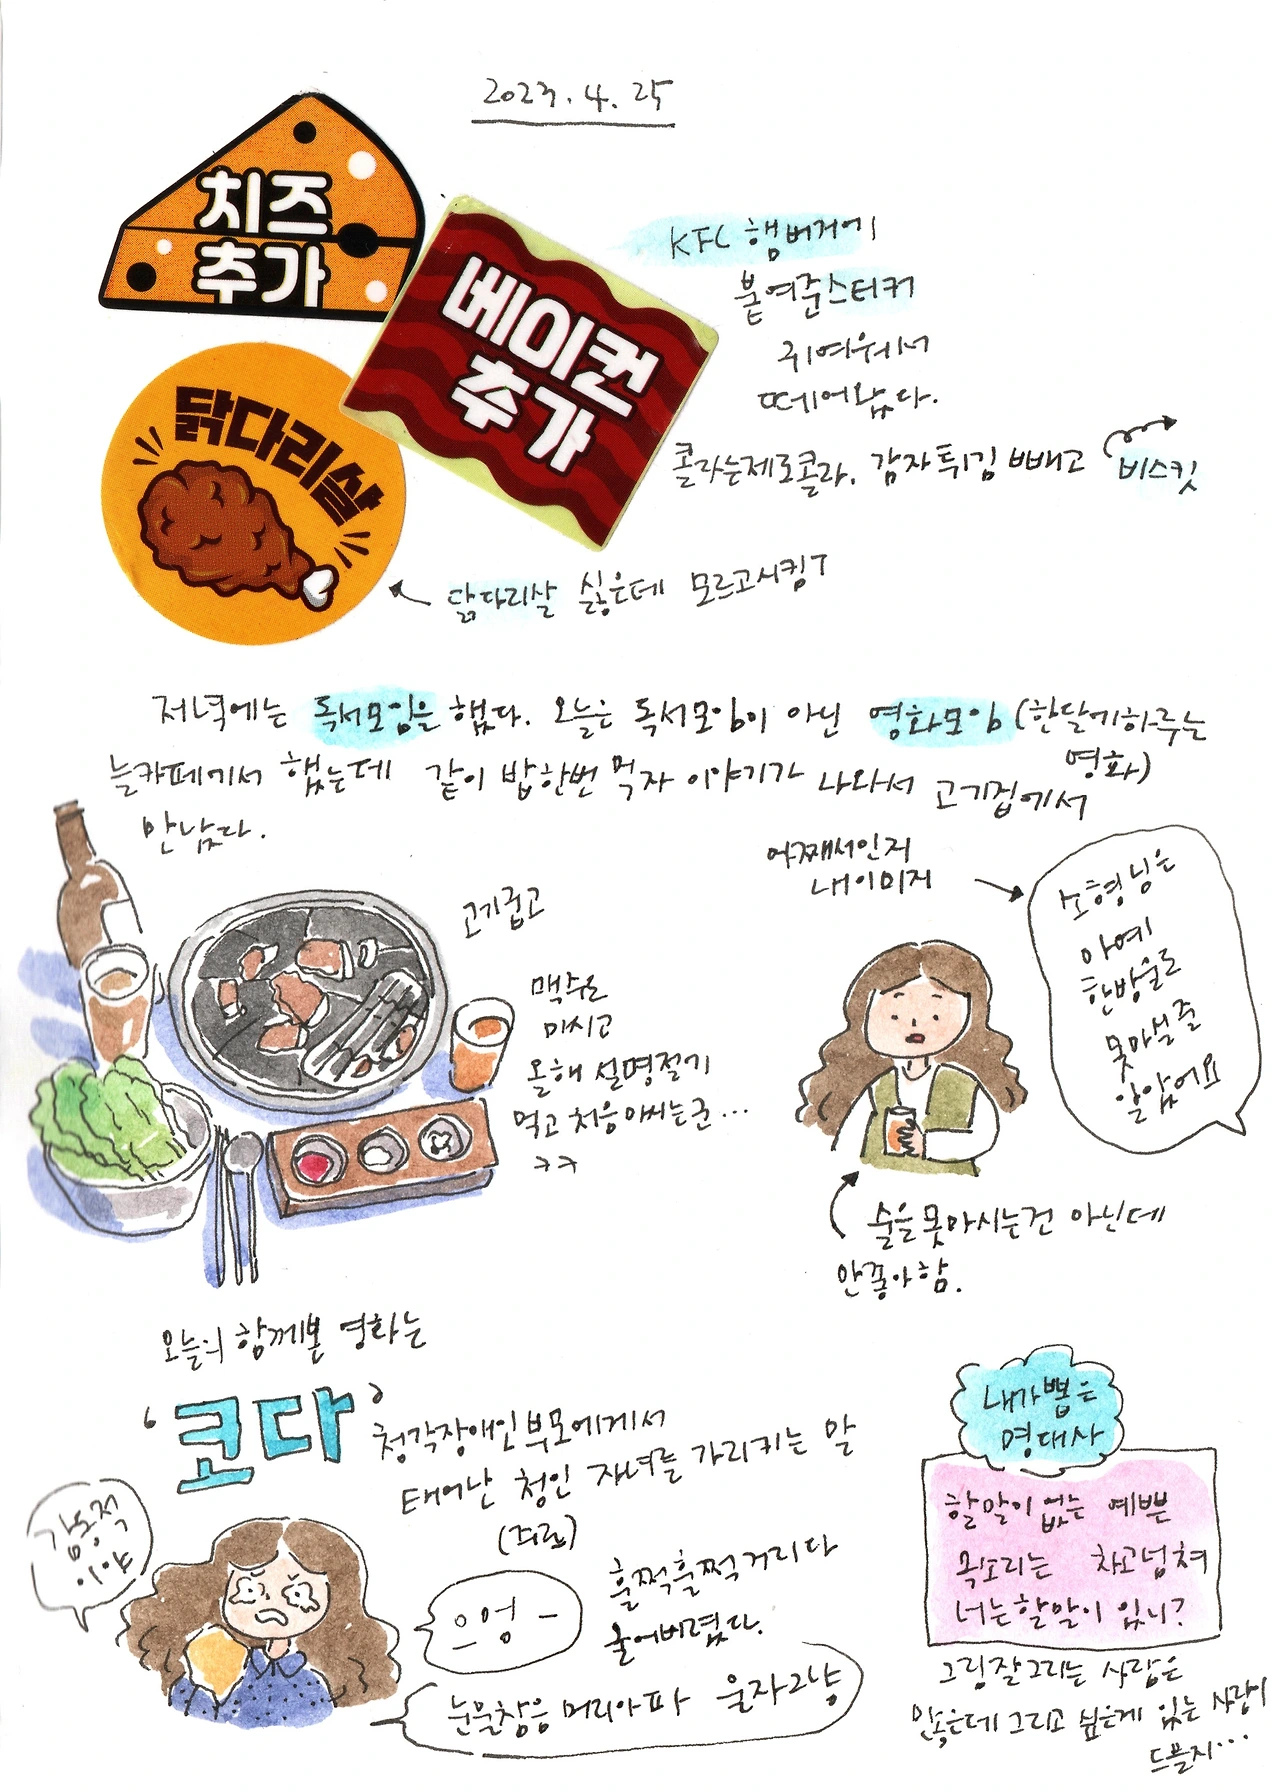 2023. 4. 25
치즈
추가
베이컨
추가
닭다리살
KFC 햄버거에
붙여준스티커
귀여워서
떼어놨다.
콜라는제로콜라. 감자튀김 빼고 비스킷
닭다리살 싫은데 모르고시킴ㅜ
저녁에는 독서모임을 했다. 오늘은 독서모임이 아닌 영화모임 (한달에하루는
영화)
늘카페에서 했는데 같이 밥한번 먹자 이야기가 나와서 고기집에서
만났다.
고기굽고
맥주도
마시고
올해 설명절기
먹고 처음마시는군...
ㅋㅋ
어째서인지
내이미지
소형님은
아예
한방울도
못마실줄
알았어요
술을못마시는건 아닌데
안좋아함.
오늘의 함께본 영화는
‘코다’
청각장애인부모에게서
태어난 청인 자녀를 가리키는 말
감동적
이야
으엉 -
훌쩍훌쩍거리다
울어버렸다.
눈물참음 머리아파 울자그냥
내가뽑은
명대사
할말이 없는 예쁜
목소리는 차고넘쳐
너는할말이 있니?
그림잘그리는 사람은
많은데 그리고 싶은게 있는 사람이
드물지...